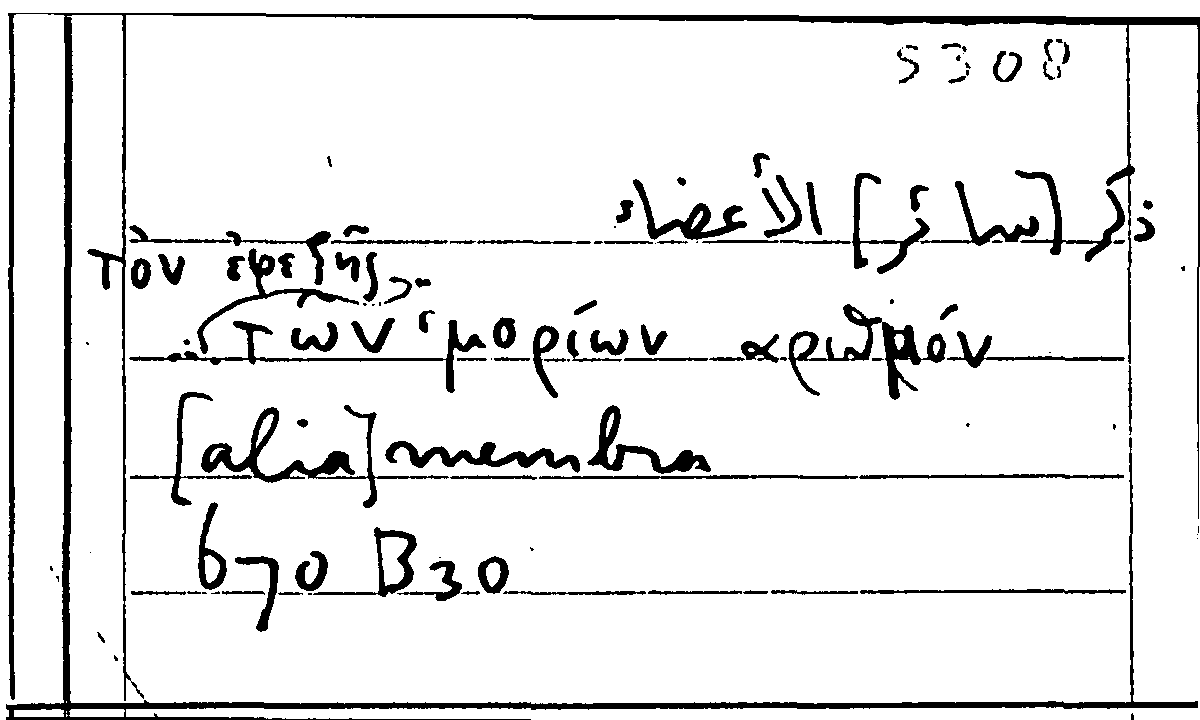 5308
ذكر [سائر] الأعضاء
τὸν ἐφεξῆς
τῶν μορίων ἀριθμόν
[alia] membra
670 B30